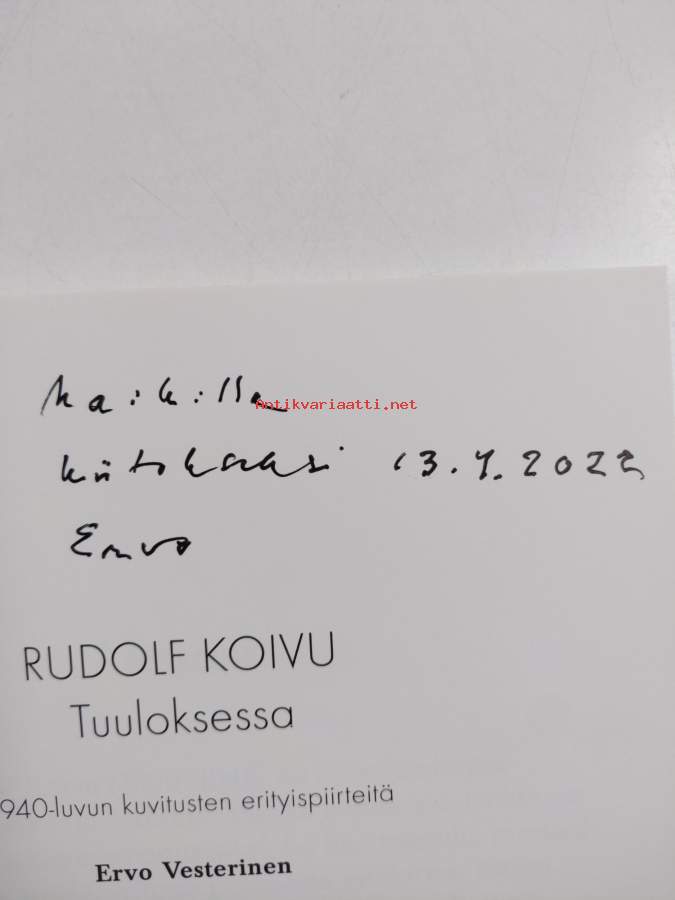 Antikvariaatti.net
13.4.2022
Ervo
RUDOLF KOIVU
Tuuloksessa
940-luvun kuvitusten erityispiirteitä
Ervo Vesterinen